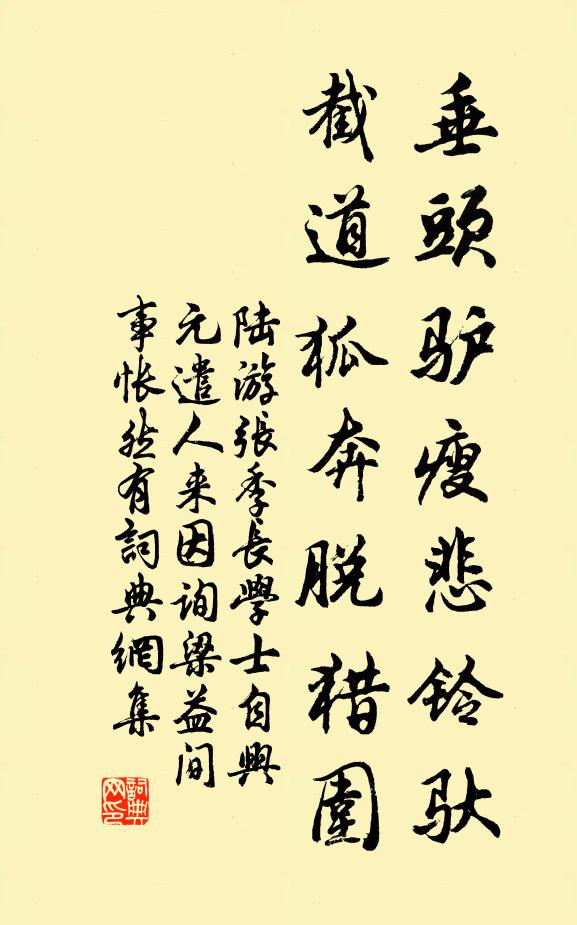 垂頭驴瘦悲铃驮
截道狐奔脱猎圍
陆游張季長學士自興
元遣人来因询梁益间
事怅然有詞典網集
詞典网印